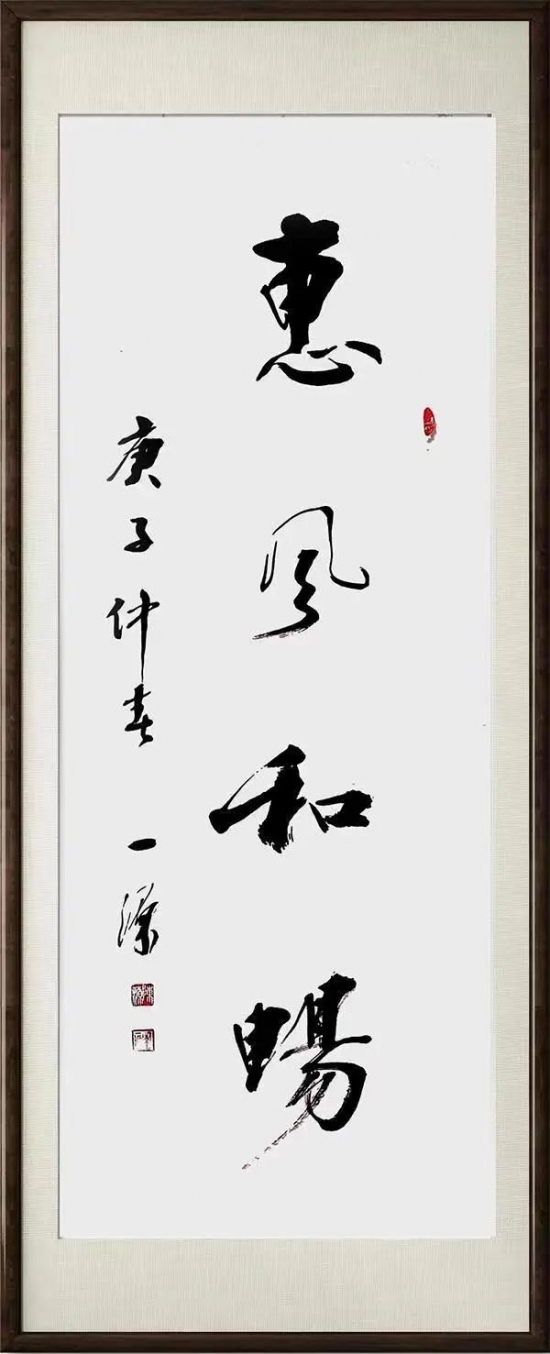 惠风和暢
庚子仲春 一